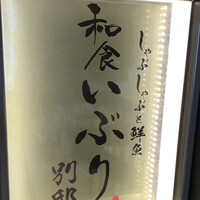 しゃぶしゃぶと鮮魚
和食いぶり
別邸